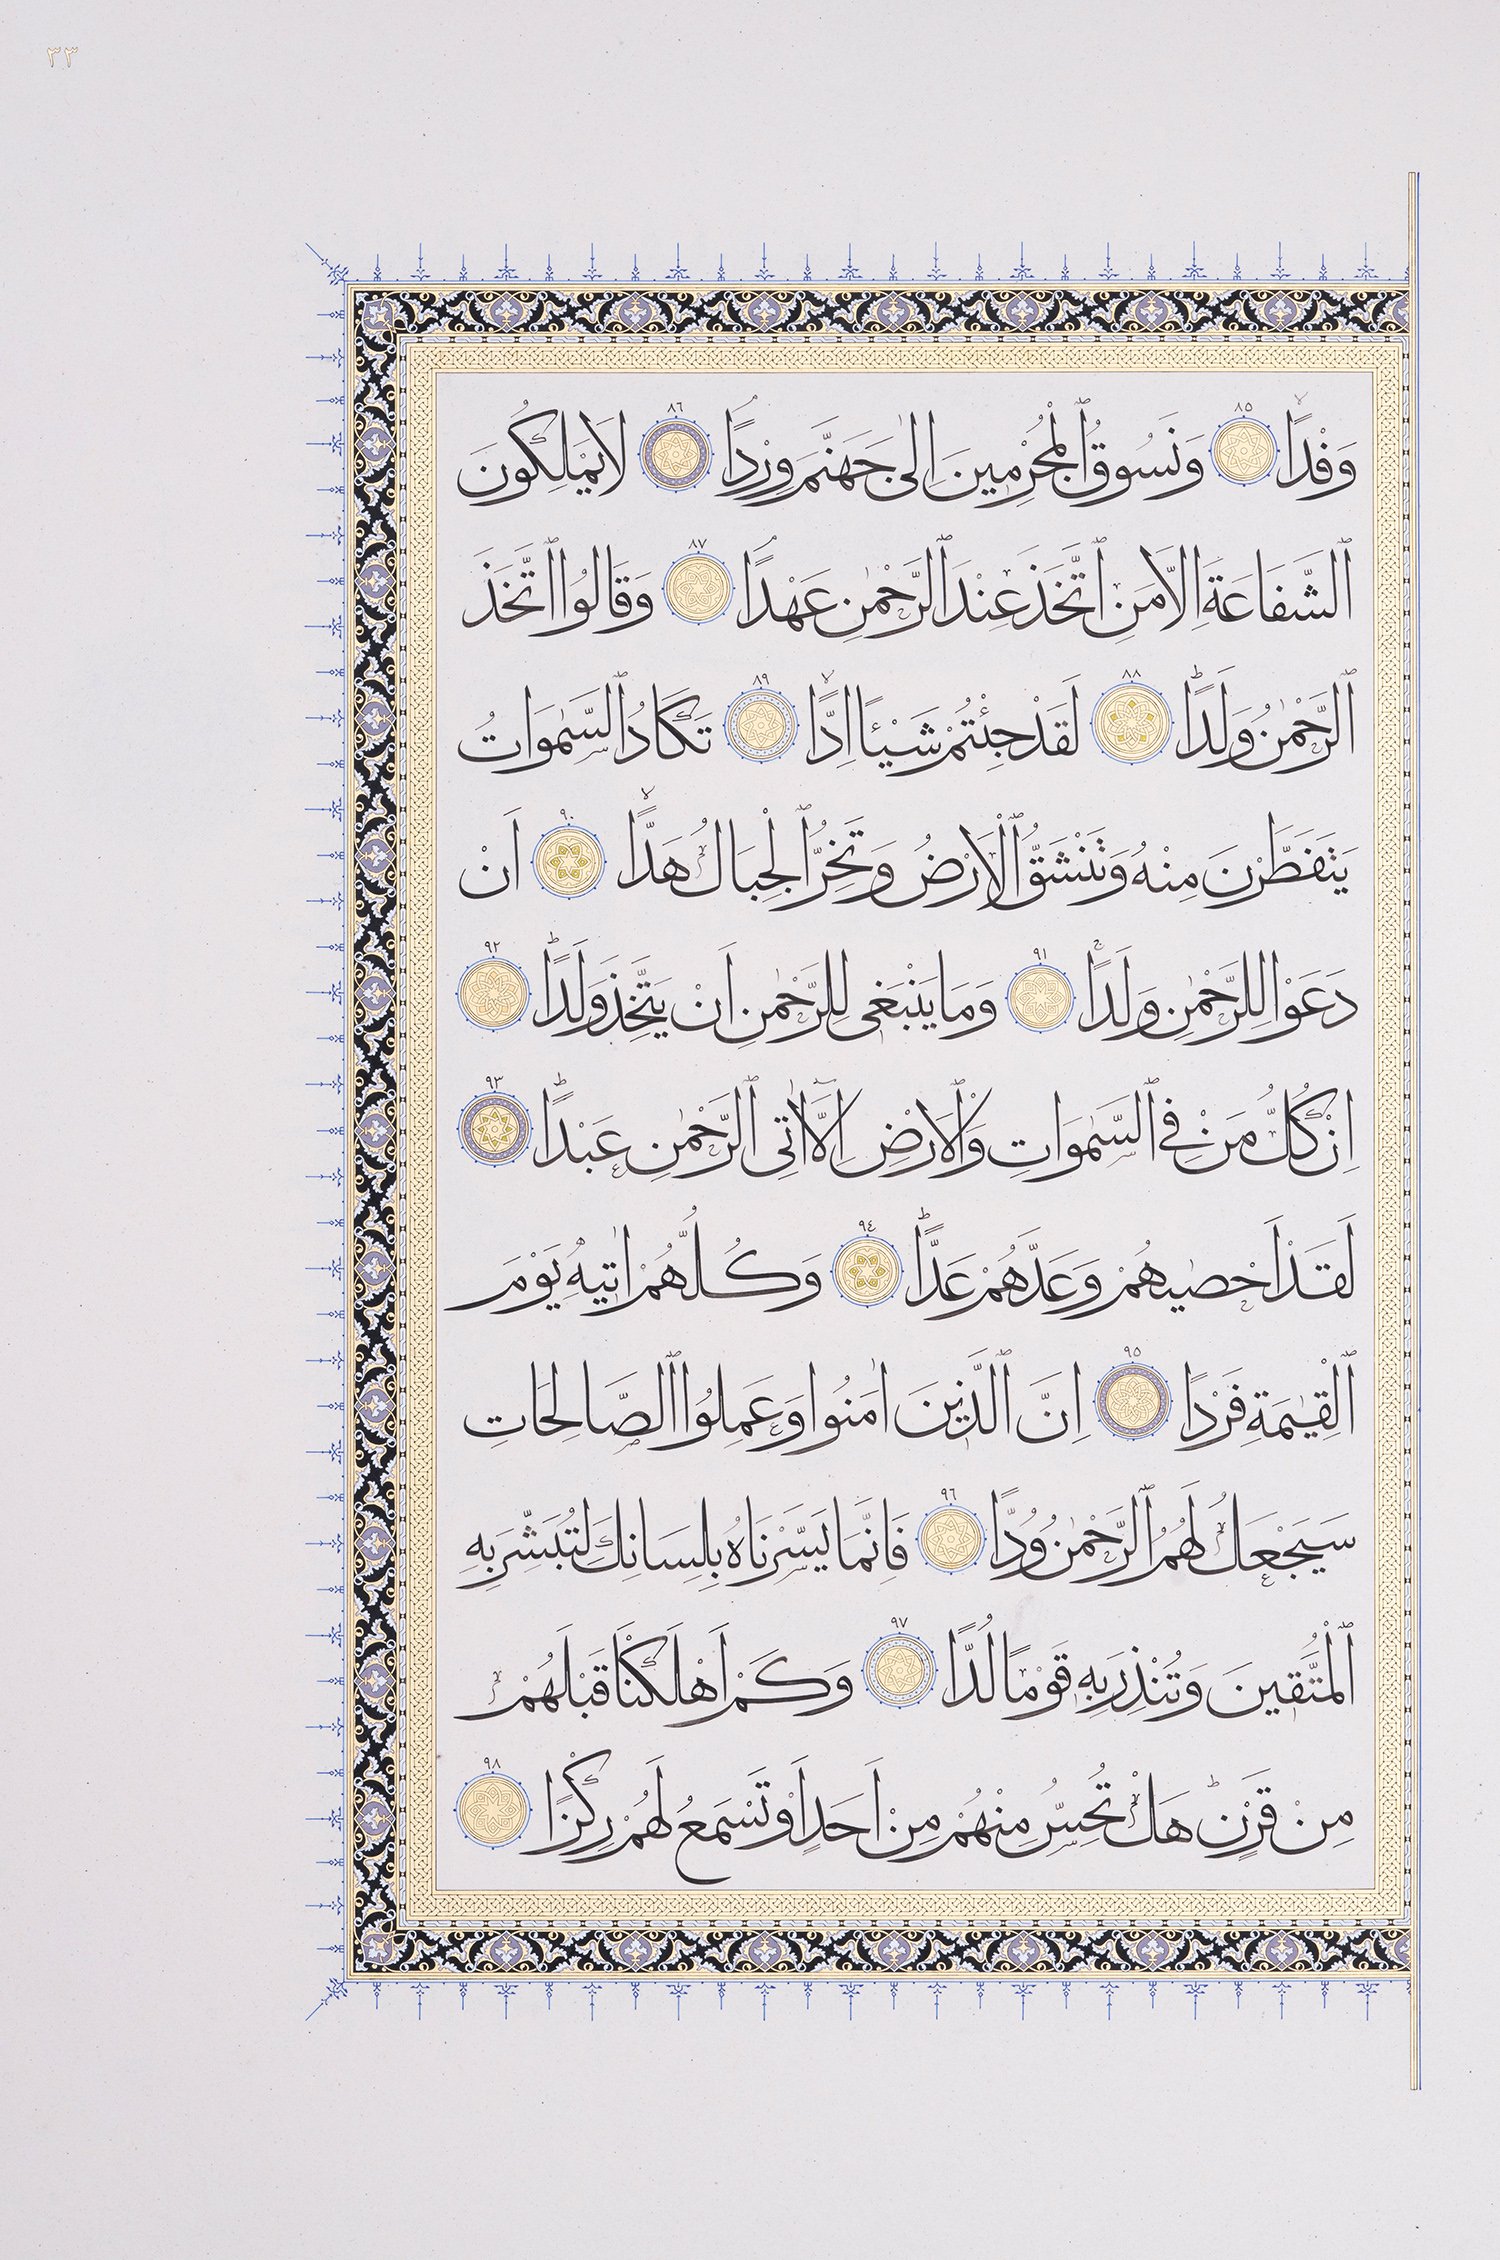 ٣٣
وَفْدًا ٨٥ وَنَسُوقُ ٱلْمُجْرِمِينَ اِلٰى جَهَنَّمَ وِرْدًا ٨٦ لَا يَمْلِكُونَ
ٱلشَّفَاعَةَ اِلَّا مَنِ ٱتَّخَذَ عِنْدَ ٱلرَّحْمٰنِ عَهْدًا ٨٧ وَقَالُوا ٱتَّخَذَ
ٱلرَّحْمٰنُ وَلَدًا ٨٨ لَقَدْ جِئْتُمْ شَيْئًا اِدًّا ٨٩ تَكَادُ ٱلسَّمٰوَاتُ
يَتَفَطَّرْنَ مِنْهُ وَتَنْشَقُّ ٱلْاَرْضُ وَتَخِرُّ ٱلْجِبَالُ هَدًّا ٩٠ اَنْ
دَعَوْا لِلرَّحْمٰنِ وَلَدًا ٩١ وَمَا يَنْبَغٖى لِلرَّحْمٰنِ اَنْ يَتَّخِذَ وَلَدًا ٩٢
اِنْ كُلُّ مَنْ فِى ٱلسَّمٰوَاتِ وَٱلْاَرْضِ اِلَّٓا اٰتِى ٱلرَّحْمٰنِ عَبْدًا ٩٣
لَقَدْ اَحْصٰيهُمْ وَعَدَّهُمْ عَدًّا ٩٤ وَكُلُّهُمْ اٰتٖيهِ يَوْمَ
ٱلْقِيٰمَةِ فَرْدًا ٩٥ اِنَّ ٱلَّذٖينَ اٰمَنُوا وَعَمِلُوا ٱلصَّالِحَاتِ
سَيَجْعَلُ لَهُمُ ٱلرَّحْمٰنُ وُدًّا ٩٦ فَاِنَّمَا يَسَّرْنَاهُ بِلِسَانِكَ لِتُبَشِّرَ بِهِ
ٱلْمُتَّقٖينَ وَتُنْذِرَ بِهٖ قَوْمًا لُدًّا ٩٧ وَكَمْ اَهْلَكْنَا قَبْلَهُمْ
مِنْ قَرْنٍ هَلْ تُحِسُّ مِنْهُمْ مِنْ اَحَدٍ اَوْ تَسْمَعُ لَهُمْ رِكْزًا ٩٨